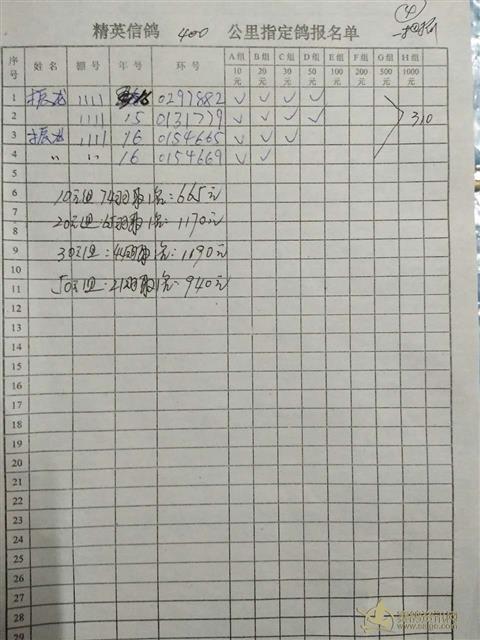 精英信鸽 400 公里指定鸽报名单
序号 姓名 棚号 年号 环号 A组 10元 B组 20元 C组 30元 D组 50元 E组 100元 F组 200元 G组 500元 H组 1000元
1 振龙 1111 0297882 ✓ ✓ ✓ ✓
2 1111 15 0131779 ✓ ✓ ✓ ✓ 310
3 振龙 1111 16 0154665 ✓ ✓ ✓
4 〃 〃 16 0154669 ✓ ✓
5
6 10元组 74羽取1名:665元
7 20元组:65羽取1名:1170元
8
9 30元组:44羽取1名:1190元
10
11 50元组:21羽取1名:940元
12
13
14
15
16
17
18
19
20
21
22
23
24
25
26
27
28
29